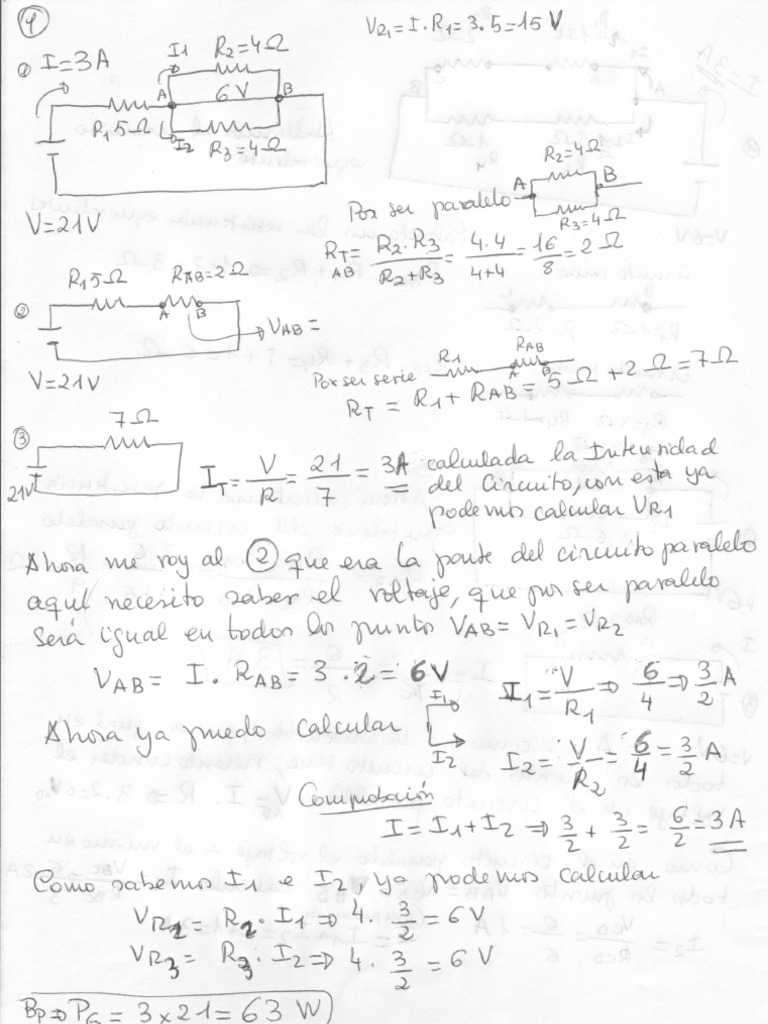 1
V_R1 = I · R1 = 3 · 5 = 15 V
① I = 3A
I1
R2 = 4Ω
A 6V B
R1 5Ω
I2 R3 = 4Ω
V = 21V
R2 = 4Ω
Por ser paralelo A B
R3 = 4Ω
R_T AB = R2 · R3 / R2 + R3 = 4·4 / 4+4 = 16/8 = 2 Ω
R1 5Ω R_AB = 2Ω
② A B → V_AB =
V = 21V
Por ser serie R1 R_AB A B
R_T = R1 + R_AB = 5Ω + 2Ω = 7Ω
③ 7Ω
21V
I_T = V/R = 21/7 = 3A calculada la Intensidad
del circuito, con esta ya
podemos calcular V_R1
Ahora me voy al ② que era la parte del circuito paralelo
aquí necesito saber el voltaje, que por ser paralelo
será igual en todos los punto V_AB = V_R1 = V_R2
V_AB = I · R_AB = 3 · 2 = 6V
Ahora ya puedo calcular
I1 I1 = V/R1 ⇒ 6/4 ⇒ 3/2 A
I2 I2 = V/R2 = 6/4 = 3/2 A
Comprobación
I = I1 + I2 ⇒ 3/2 + 3/2 = 6/2 = 3A
Como sabemos I1 e I2, ya podemos calcular
V_R2 = R2 · I1 ⇒ 4 · 3/2 = 6V
V_R3 = R3 · I2 ⇒ 4 · 3/2 = 6V
Bp ⇒ P_G = 3 × 21 = 63 W